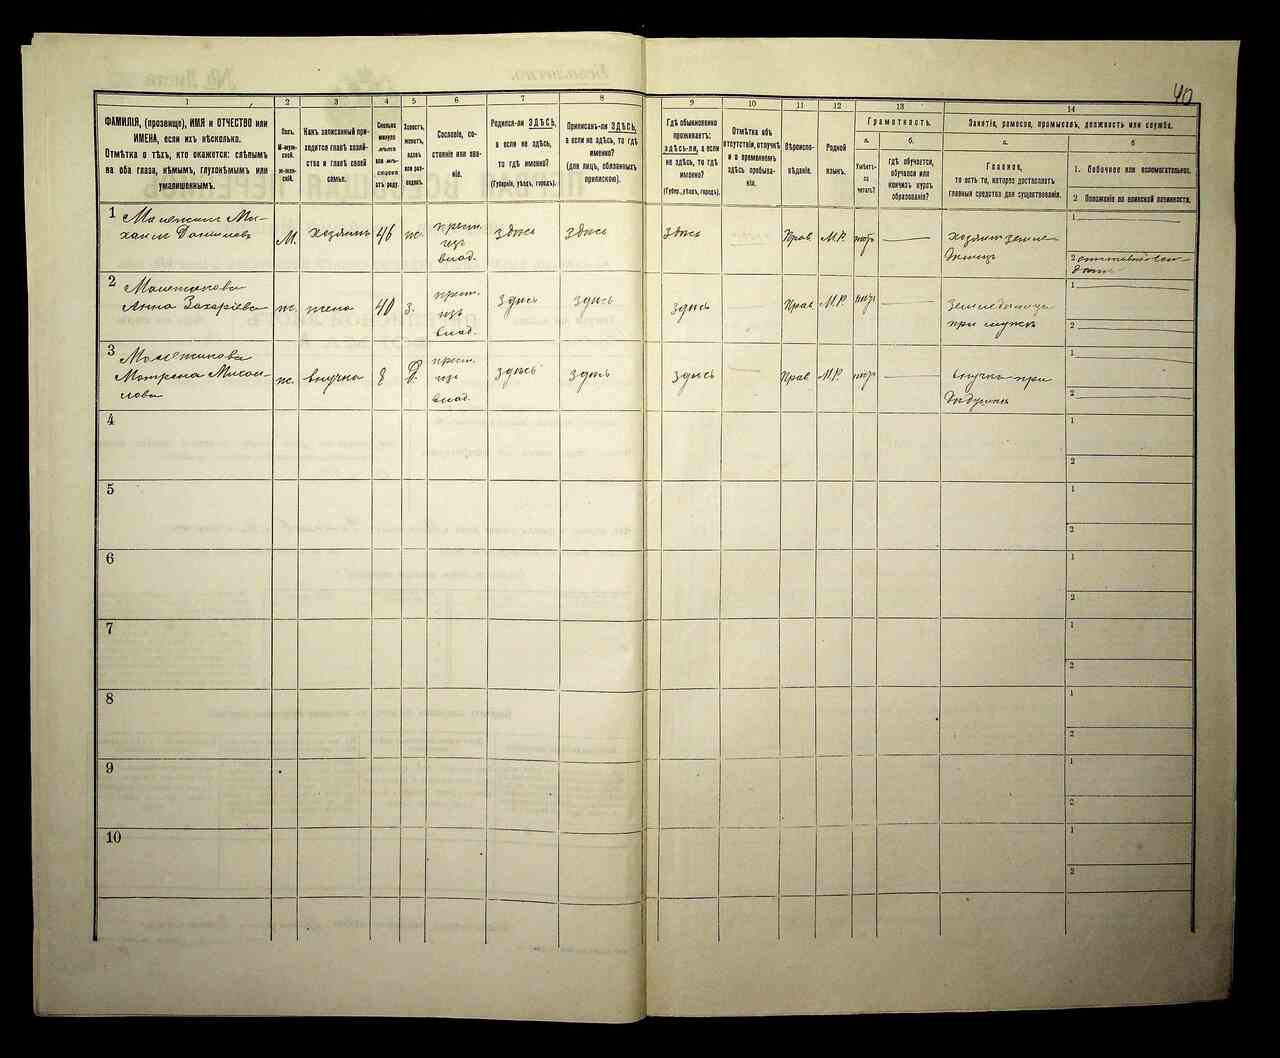 40
1
2
3
4
5
6
7
8
9
10
11
12
13
14
ФАМИЛІЯ, (прозвище), ИМЯ и ОТЧЕСТВО или
ИМЕНА, если ихъ нѣсколько.
Отмѣтка о тѣхъ, кто окажется: слѣпымъ
на оба глаза, нѣмымъ, глухонѣмымъ или
умалишеннымъ.
Полъ.
М-муж-
ской.
Ж-жен-
скій.
Какъ записанный при-
ходится главѣ хозяй-
ства и главѣ своей
семьи.
Сколько
минуло
лѣтъ
или мѣ-
сяцевъ
отъ роду.
Холостъ,
женатъ,
вдовъ
или раз-
веденъ.
Сословіе, со-
стояніе или зва-
ніе.
Родился-ли ЗДѢСЬ,
а если не здѣсь,
то гдѣ именно?
(Губернія, уѣздъ, городъ).
Приписанъ-ли ЗДѢСЬ,
а если не здѣсь, то гдѣ
именно?
(для лицъ, обязанныхъ
припискою).
Гдѣ обыкновенно
проживаетъ:
здѣсь-ли, а если
не здѣсь, то гдѣ
именно?
(Губерн., уѣздъ, городъ).
Отмѣтка объ
отсутствіи, отлучкѣ
и о временномъ
здѣсь пребыва-
ніи.
Вѣроиспо-
вѣданіе.
Родной
языкъ.
Грамотность.
а.
б.
Умѣетъ-
ли
читать?
гдѣ обучается,
обучался или
кончилъ курсъ
образованія?
Занятіе, ремесло, промыселъ, должность или служба.
а.
б
Главное,
то есть то, которое доставляетъ
главныя средства для существованія.
1. Побочное или вспомогательное.
2 Положеніе по воинской повинности.
1
М.
хозяинъ
46
ж.
крест.
изъ
влад.
здѣсь
здѣсь
здѣсь
Прав
М.Р.
хозяин земле-
дѣлецъ
1
2
2
Анна Захаріева
ж.
жена
40
з.
крест.
изъ
влад.
здѣсь
здѣсь
здѣсь
Прав
М.Р.
при мужѣ
1
2
3
Матрена
ж.
внучка
8
Д.
крест.
изъ
влад.
здѣсь
здѣсь
здѣсь
Прав
М.Р.
внучка при
дѣдушкѣ
1
2
4
1
2
5
1
2
6
1
2
7
1
2
8
1
2
9
1
2
10
1
2